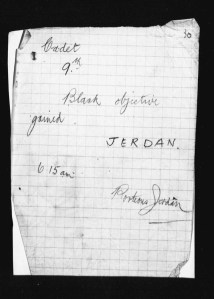 30
Cadet
9.th
Blask objective
gained.
JERDAN.
6 15 am
Jerdan